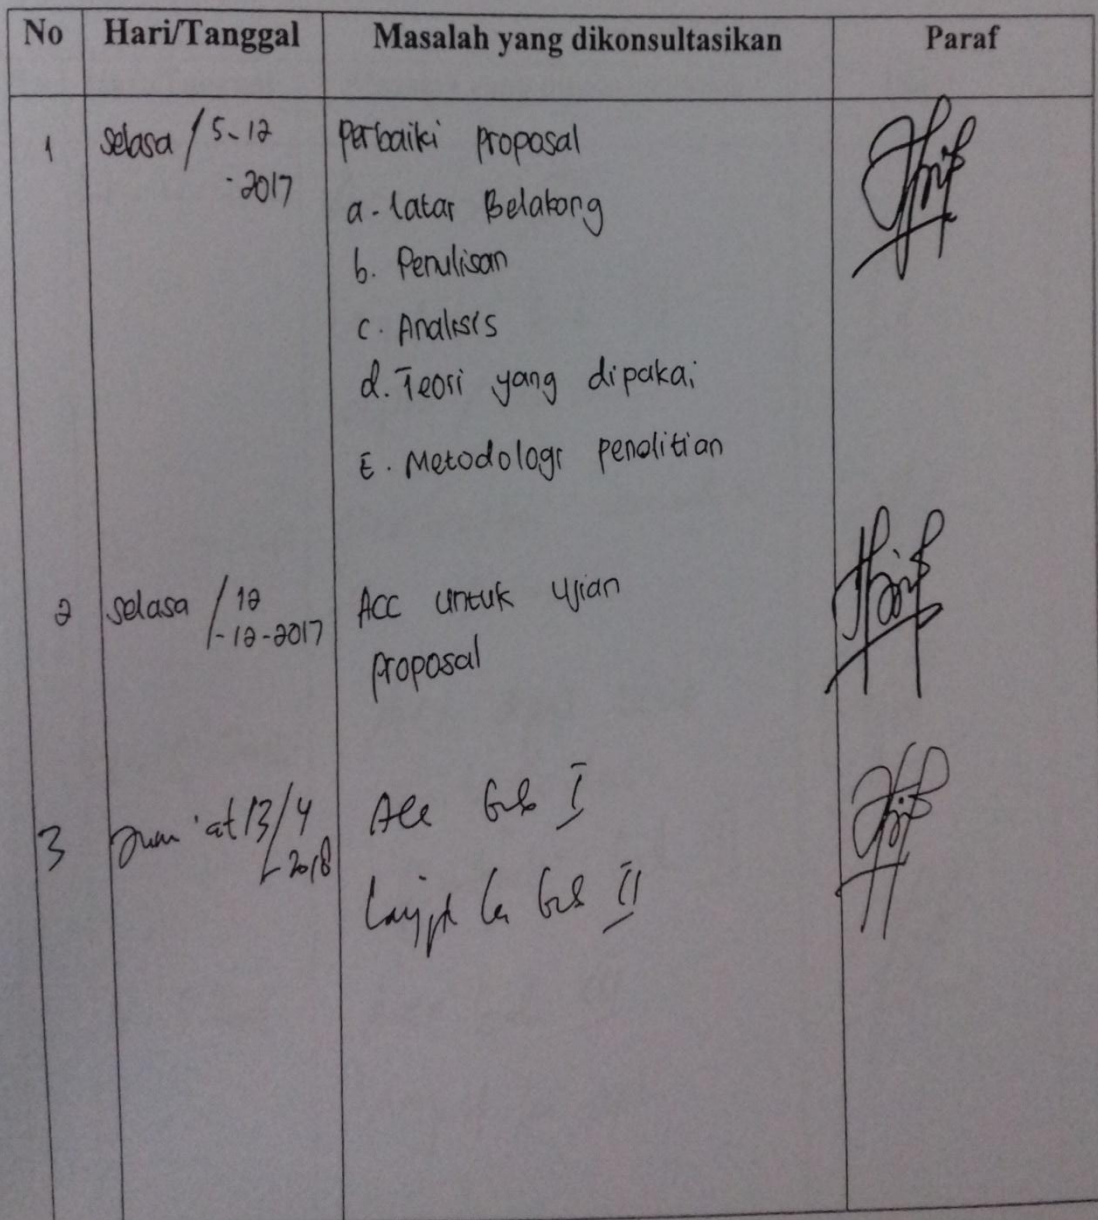 No Hari/Tanggal Masalah yang dikonsultasikan Paraf
1 Selasa / 5-12 Perbaiki proposal
-2017
a. latar Belakang
b. Penulisan
c. Analisis
d. Teori yang dipakai
E. Metodologi penelitian
2 Selasa / 12 ACC untuk Ujian
-12-2017
proposal
3 Jum'at 13/4 Acc bab I
2018
Lanjut ke bab II